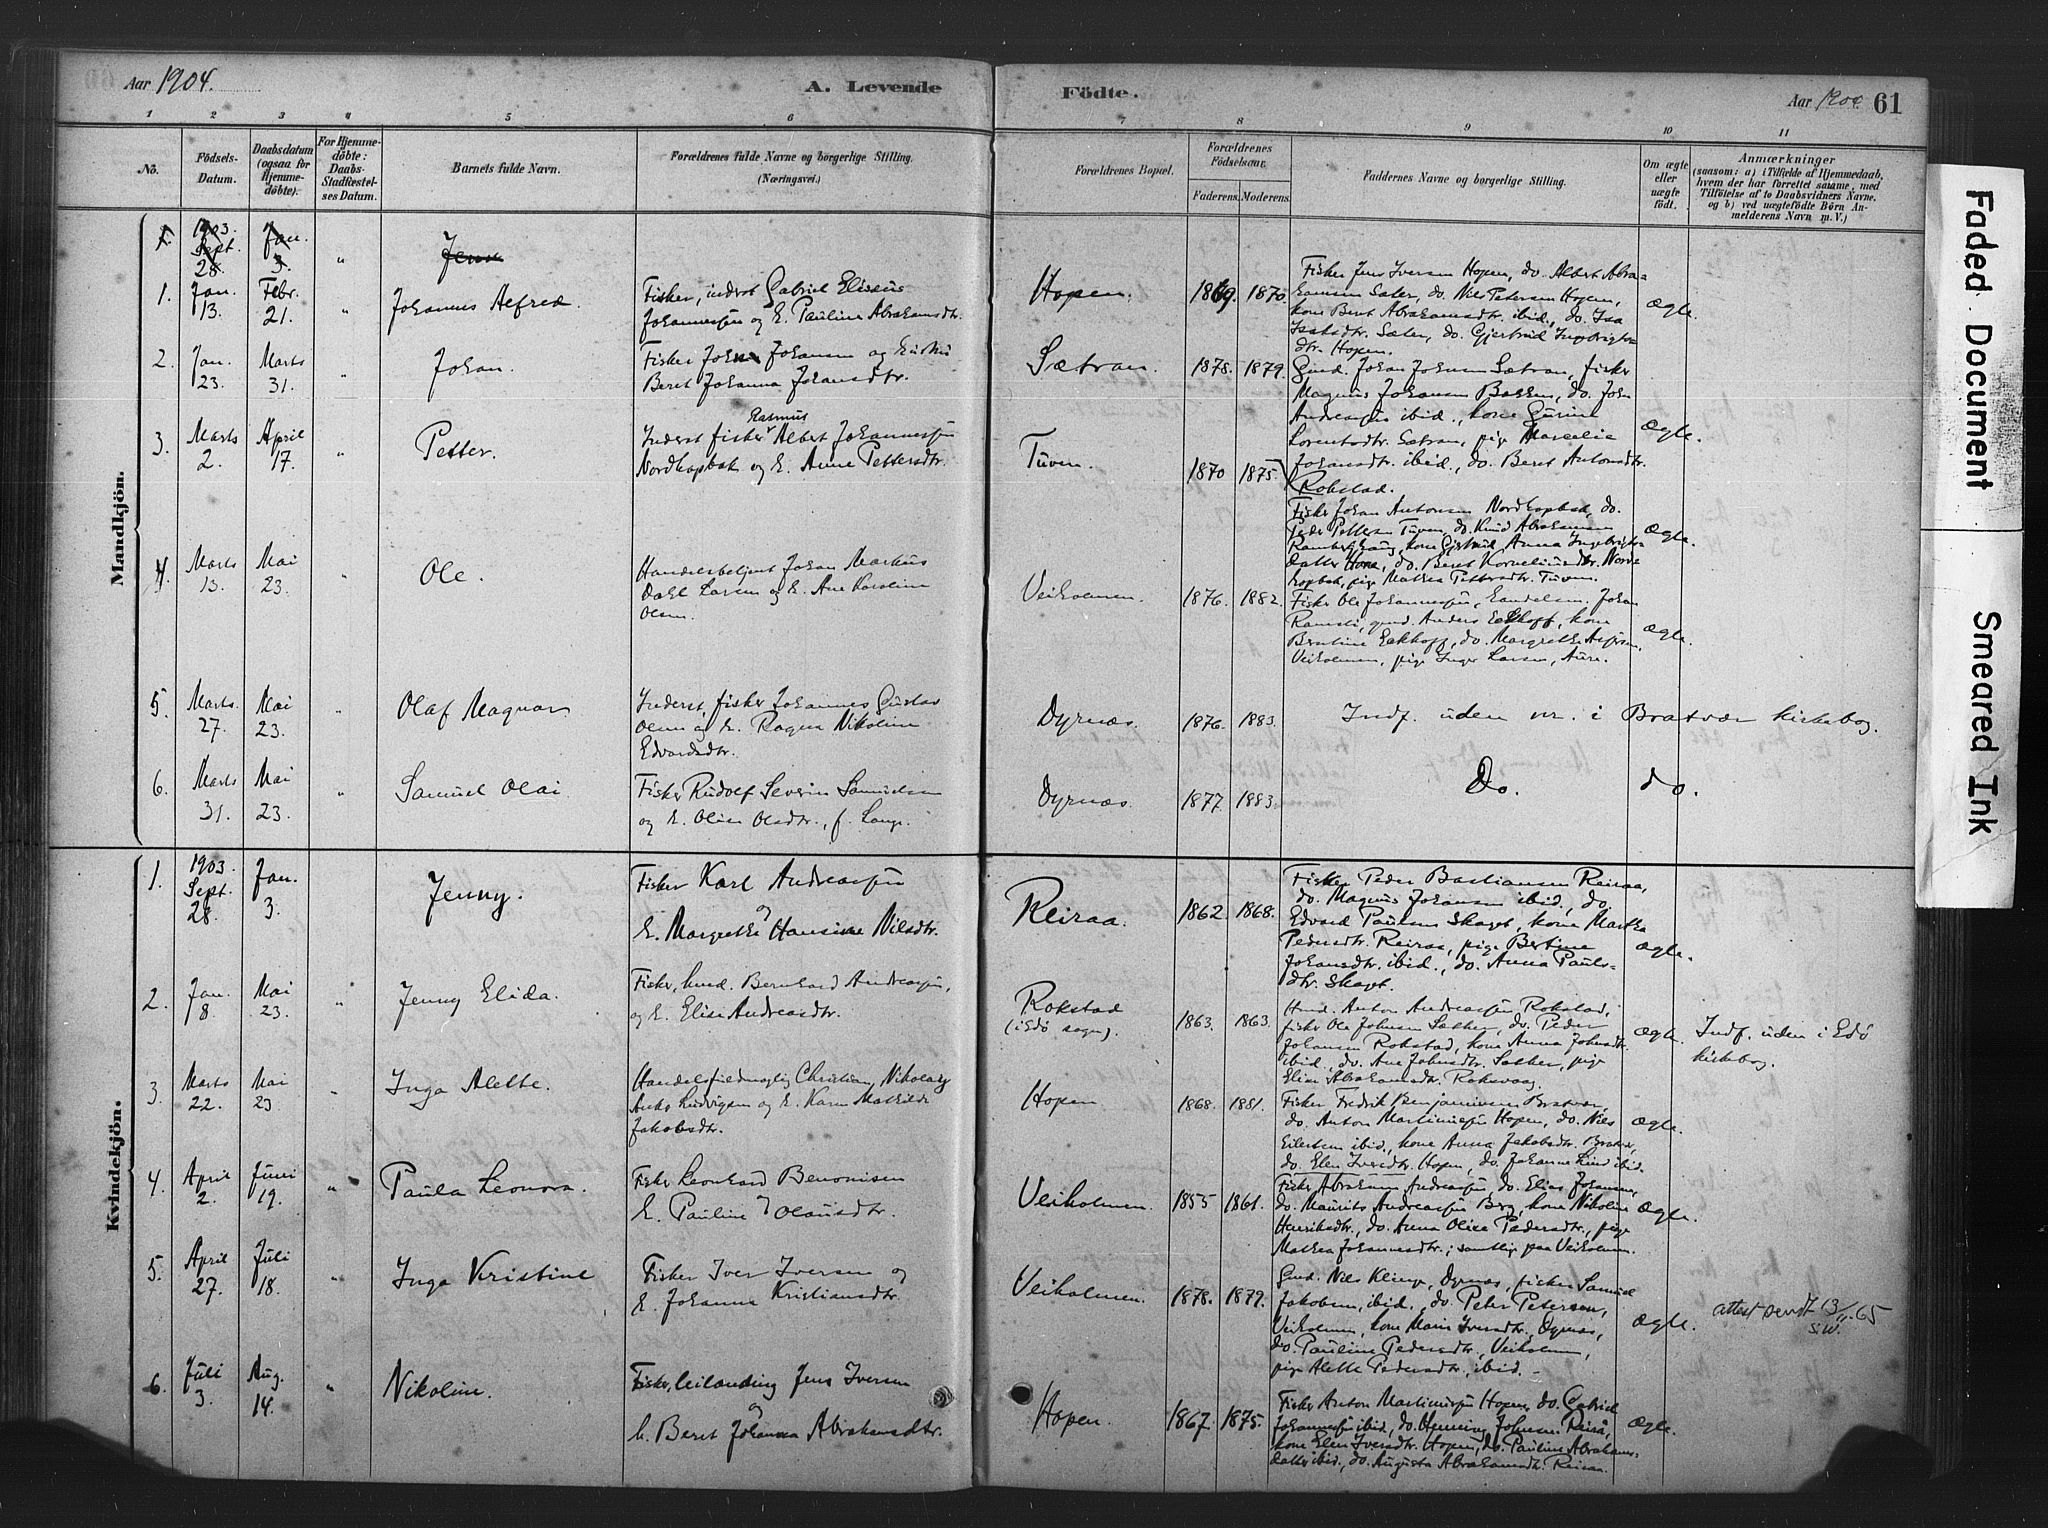 Aar 1904.
A. Levende Födte.
Aar 1904 61
1 2 3 4 5 6 7 8 9 10 11
No.
Födsels-
Datum.
Daabsdatum
(ogsaa for
Hjemme-
döbte).
For Hjemme-
döbte:
Daabs-
Stadfæstel-
ses Datum.
Barnets fulde Navn.
Forældrenes fulde Navne og borgerlige Stilling.
(Næringsvei.)
Forældrenes Bopæl.
Forældrenes
Födselsaar.
Faderens. Moderens.
Faddernes Navne og borgerlige Stilling.
Om ægte
eller
uægte
födt.
Anmærkninger
(saasom: a) i Tilfælde af Hjemmedaab,
hvem der har forrettet samme, med
Tilföielse af to Daabsvidners Navne,
og b) ved uægtefödte Börn An-
melderens Navn m. V.)
Mandkjön.
1903.
Sept.
28.
Jan.
3.
"
Jenn
1.
Jan.
13.
Febr.
21.
"
Johannes Alfred
Fisker, inderst Gabriel Elisæus
Johannessen og h. Pauline Abrahamsdtr.
Hopen.
1869. 1870.
Fisker Jens Iversen Hopen, do. Albert Abra-
hamsen Sæter, do. Nils Petersen Hopen,
kone Beret Abrahamsdtr. ibid., do. Isa
Isaksdtr. Sæter, do. Gjertrud Ingebrigts-
dtr. Hopen.
Ægte.
2.
Jan.
23.
Marts
31.
"
Johan.
Fisker John Johansen og hustru
Beret Johanna Johansdtr.
Sætran.
1878. 1879.
Gmd. Johan Johnsen Sætran, fisker
Magnus Johansen Bakken, do. John
Andreassen ibid., kone Gurine
Lorentsdtr. Sætran, pige Marselie
Johansdtr. ibid., do. Beret Antonsdtr.
Rokstad.
Ægte.
3.
Marts
2.
April
17.
"
Petter.
Rasmus
Inderst, fisker Albert Johannessen
Nordhopbak og h. Anne Pettersdtr.
Tuven.
1870 1875.
Fisker Johan Antonsen Nordhopbak, do.
Peder Pettersen Tuven, do. Knud Abrahamsen
kone Gjertrud Anna Ingebrigts-
datter Hone, do. Beret Korneliusdtr. Nord-
hopbak, pige Mathea Pettersdtr. Tuven.
Ægte.
4.
Marts
13.
Mai
23.
"
Ole.
Handelsbetjent Johan Markus
Dahl Larsen og h. Ane Karoline
Olsen.
Veiholmen.
1876. 1882.
Fisker Ole Johannessen, handelsm. Johan
Ramsli, gmd. Anders Eckhoff, kone
Berntine Eckhoff, do. Margrethe
Veiholmen, pige Inger Larsen, Aure.
Ægte.
5.
Marts
27.
Mai
23.
"
Olaf Magnar
Inderst, fisker Johannes Gustav
Olsen og h. Ragna Nikoline
Edvardsdtr.
Dyrnæs.
1876. 1883.
Indf. uden nr. i Bratvær kirkebog.
6.
Marts
31.
Mai
23.
"
Samuel Olai
Fisker Rudolf Severin Samuelsen
og h. Oline Olsdtr., f. Lange.
Dyrnæs.
1877. 1883.
Do. do.
Kvindekjön.
1.
1903.
Sept.
28.
Jan.
3.
Jenny.
Fisker Karl Andreassen
og
h. Margrethe Hansine Nilsdtr.
Reiraa.
1862. 1868.
Fisker Peder Bastiansen Reiraa,
do. Magnus Johansen ibid., do.
Edvard Paulsen Skaget, kone Martha
Pedersdtr. Reiraa, pige Bertine
Johansdtr. ibid., do. Anna Pauls-
dtr. Skaget.
Ægte.
2.
Jan.
8.
Mai
23.
"
Jenny Elida.
Fisker, husd. Bernhard Andreassen,
og h. Elise Andreasdtr.
Rokstad
(i Edö sogn).
1863. 1863.
Husd. Anton Andreassen Rokstad,
fisker Ole Johnsen Sæther, do. Peder
Johansen Rokstad, kone Anna Johnsdtr.
ibid., do. Ane Johnsdtr. Sæther, pige
Elise Abrahamsdtr. Roksvaag.
Ægte.
Indf. uden i Edö
kirkebog.
3.
Marts
22.
Mai
23
"
Inga Alette.
Handelsfuldmægtig Christian Nikolay
Ludvigsen og h. Karen Mathilde
Jakobsdtr.
Hopen
1868. 1881.
Fisker Fredrik Benjaminsen Bratvær,
do. Anton Martiniussen Hopen, do. Nils
Eilertsen ibid., kone Anna Jakobsdtr. Bratvær,
do. Elen Iversdtr. Hopen, do. Johanne Lind ibid.
Ægte.
4.
April
2.
Juni
19.
"
Paula Leonora.
Fisker Leonhard Benonisen
og
h. Pauline Olausdtr.
Veiholmen.
1855 1861.
Fisker Abraham Andreassen, do. Elias Johansen,
do. Maurits Andreassen Berg, kone Nikoline
Henriksdtr., do. Anna Oline Pedersdtr., pige
Mathea Johannesdtr.; samtlige paa Veiholmen.
Ægte.
5.
April
27.
Juli
18.
"
Inga Kristine
Fisker Iver Iversen og
h. Johanna Kristiansdtr.
Veiholmen.
1878. 1879.
Gmd. Nils Klinge, Dyrnæs, fisker Samuel
Jakobsen, ibid., do. Peter Petersen,
Veiholmen, kone Marie Iversdtr., Dyrnæs,
do. Pauline Pedersdtr., Veiholmen,
pige Alette Pedersdtr., ibid. -
Ægte.
attest sendt 13/11.65
S.W.
6.
Juli
3.
Aug.
14.
"
Nikoline.
Fisker, leilænding Jens Iversen
og
h. Beret Johanna Abrahamsdtr.
Hopen.
1867. 1875.
Fisker Anton Martiniussen Hopen, do. Gabriel
Johannessen ibid., do. Henning Johnsen Reiraa,
kone Elen Iversdtr. Hopen, do. Pauline Abrahams-
datter ibid., do. Augusta Abrahamsdtr. Reiraa.
Ægte.
Faded Document
Smeared Ink